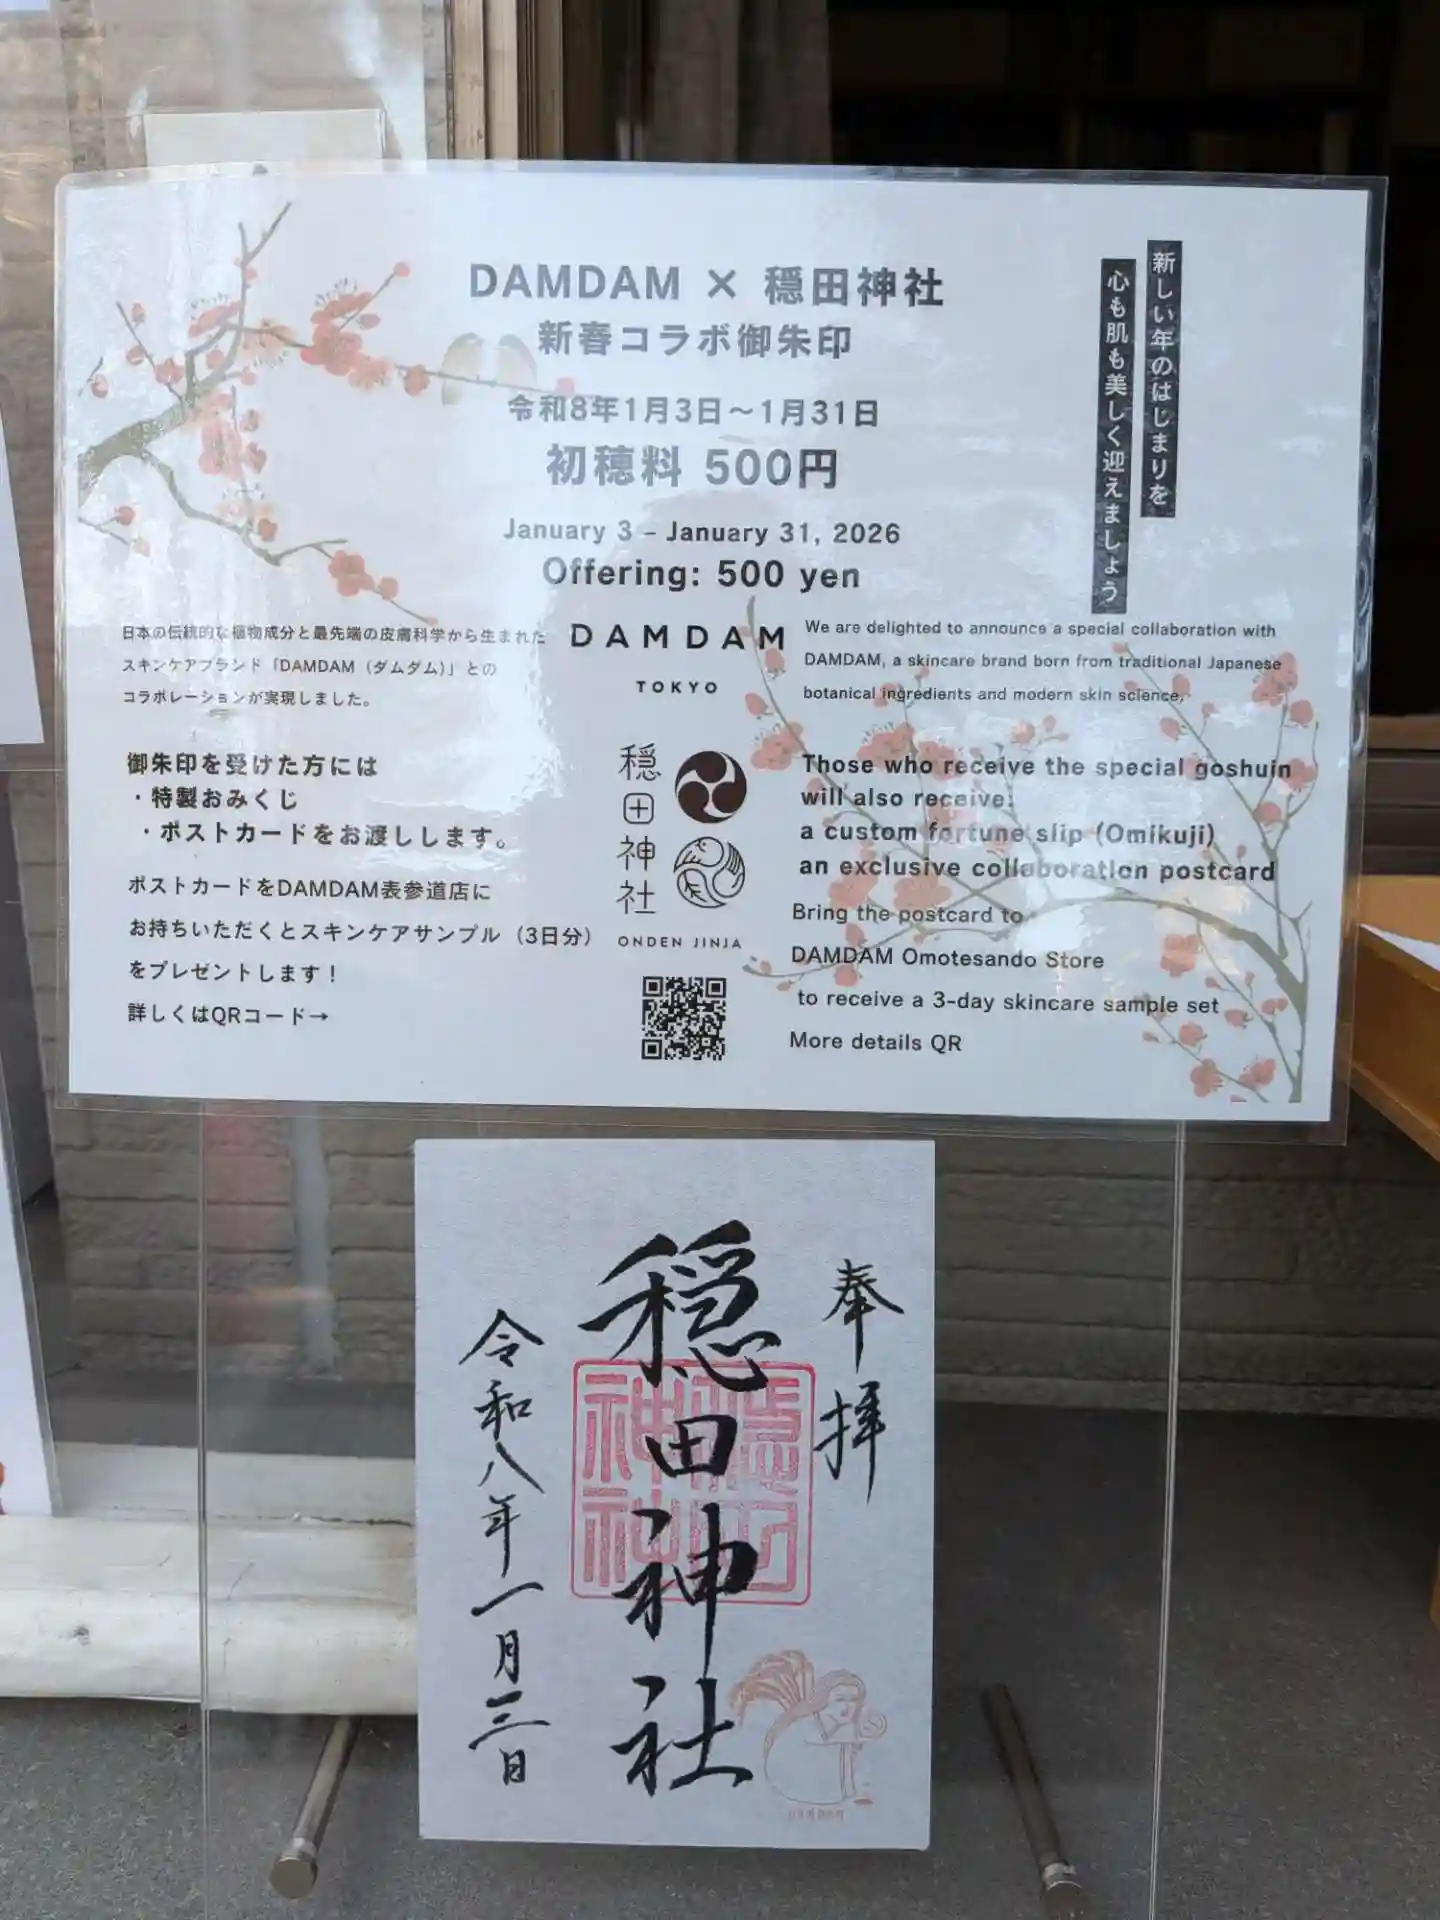 DAMDAM × 穏田神社
新春コラボ御朱印
令和8年1月3日～1月31日
初穂料 500円
January 3 – January 31, 2026
Offering: 500 yen
新しい年のはじまりを
心も肌も美しく迎えましょう
日本の伝統的な植物成分と最先端の皮膚科学から生まれた
スキンケアブランド「DAMDAM（ダムダム）」との
コラボレーションが実現しました。
御朱印を受けた方には
・特製おみくじ
・ポストカードをお渡しします。
ポストカードをDAMDAM表参道店に
お持ちいただくとスキンケアサンプル（3日分）
をプレゼントします！
詳しくはQRコード→
DAMDAM
TOKYO
穏田神社
ONDEN JINJA
We are delighted to announce a special collaboration with
DAMDAM, a skincare brand born from traditional Japanese
botanical ingredients and modern skin science.
Those who receive the special goshuin
will also receive:
a custom fortune slip (Omikuji)
an exclusive collaboration postcard
Bring the postcard to
DAMDAM Omotesando Store
to receive a 3-day skincare sample set
More details QR
奉拝
穏田神社
令和八年一月三日